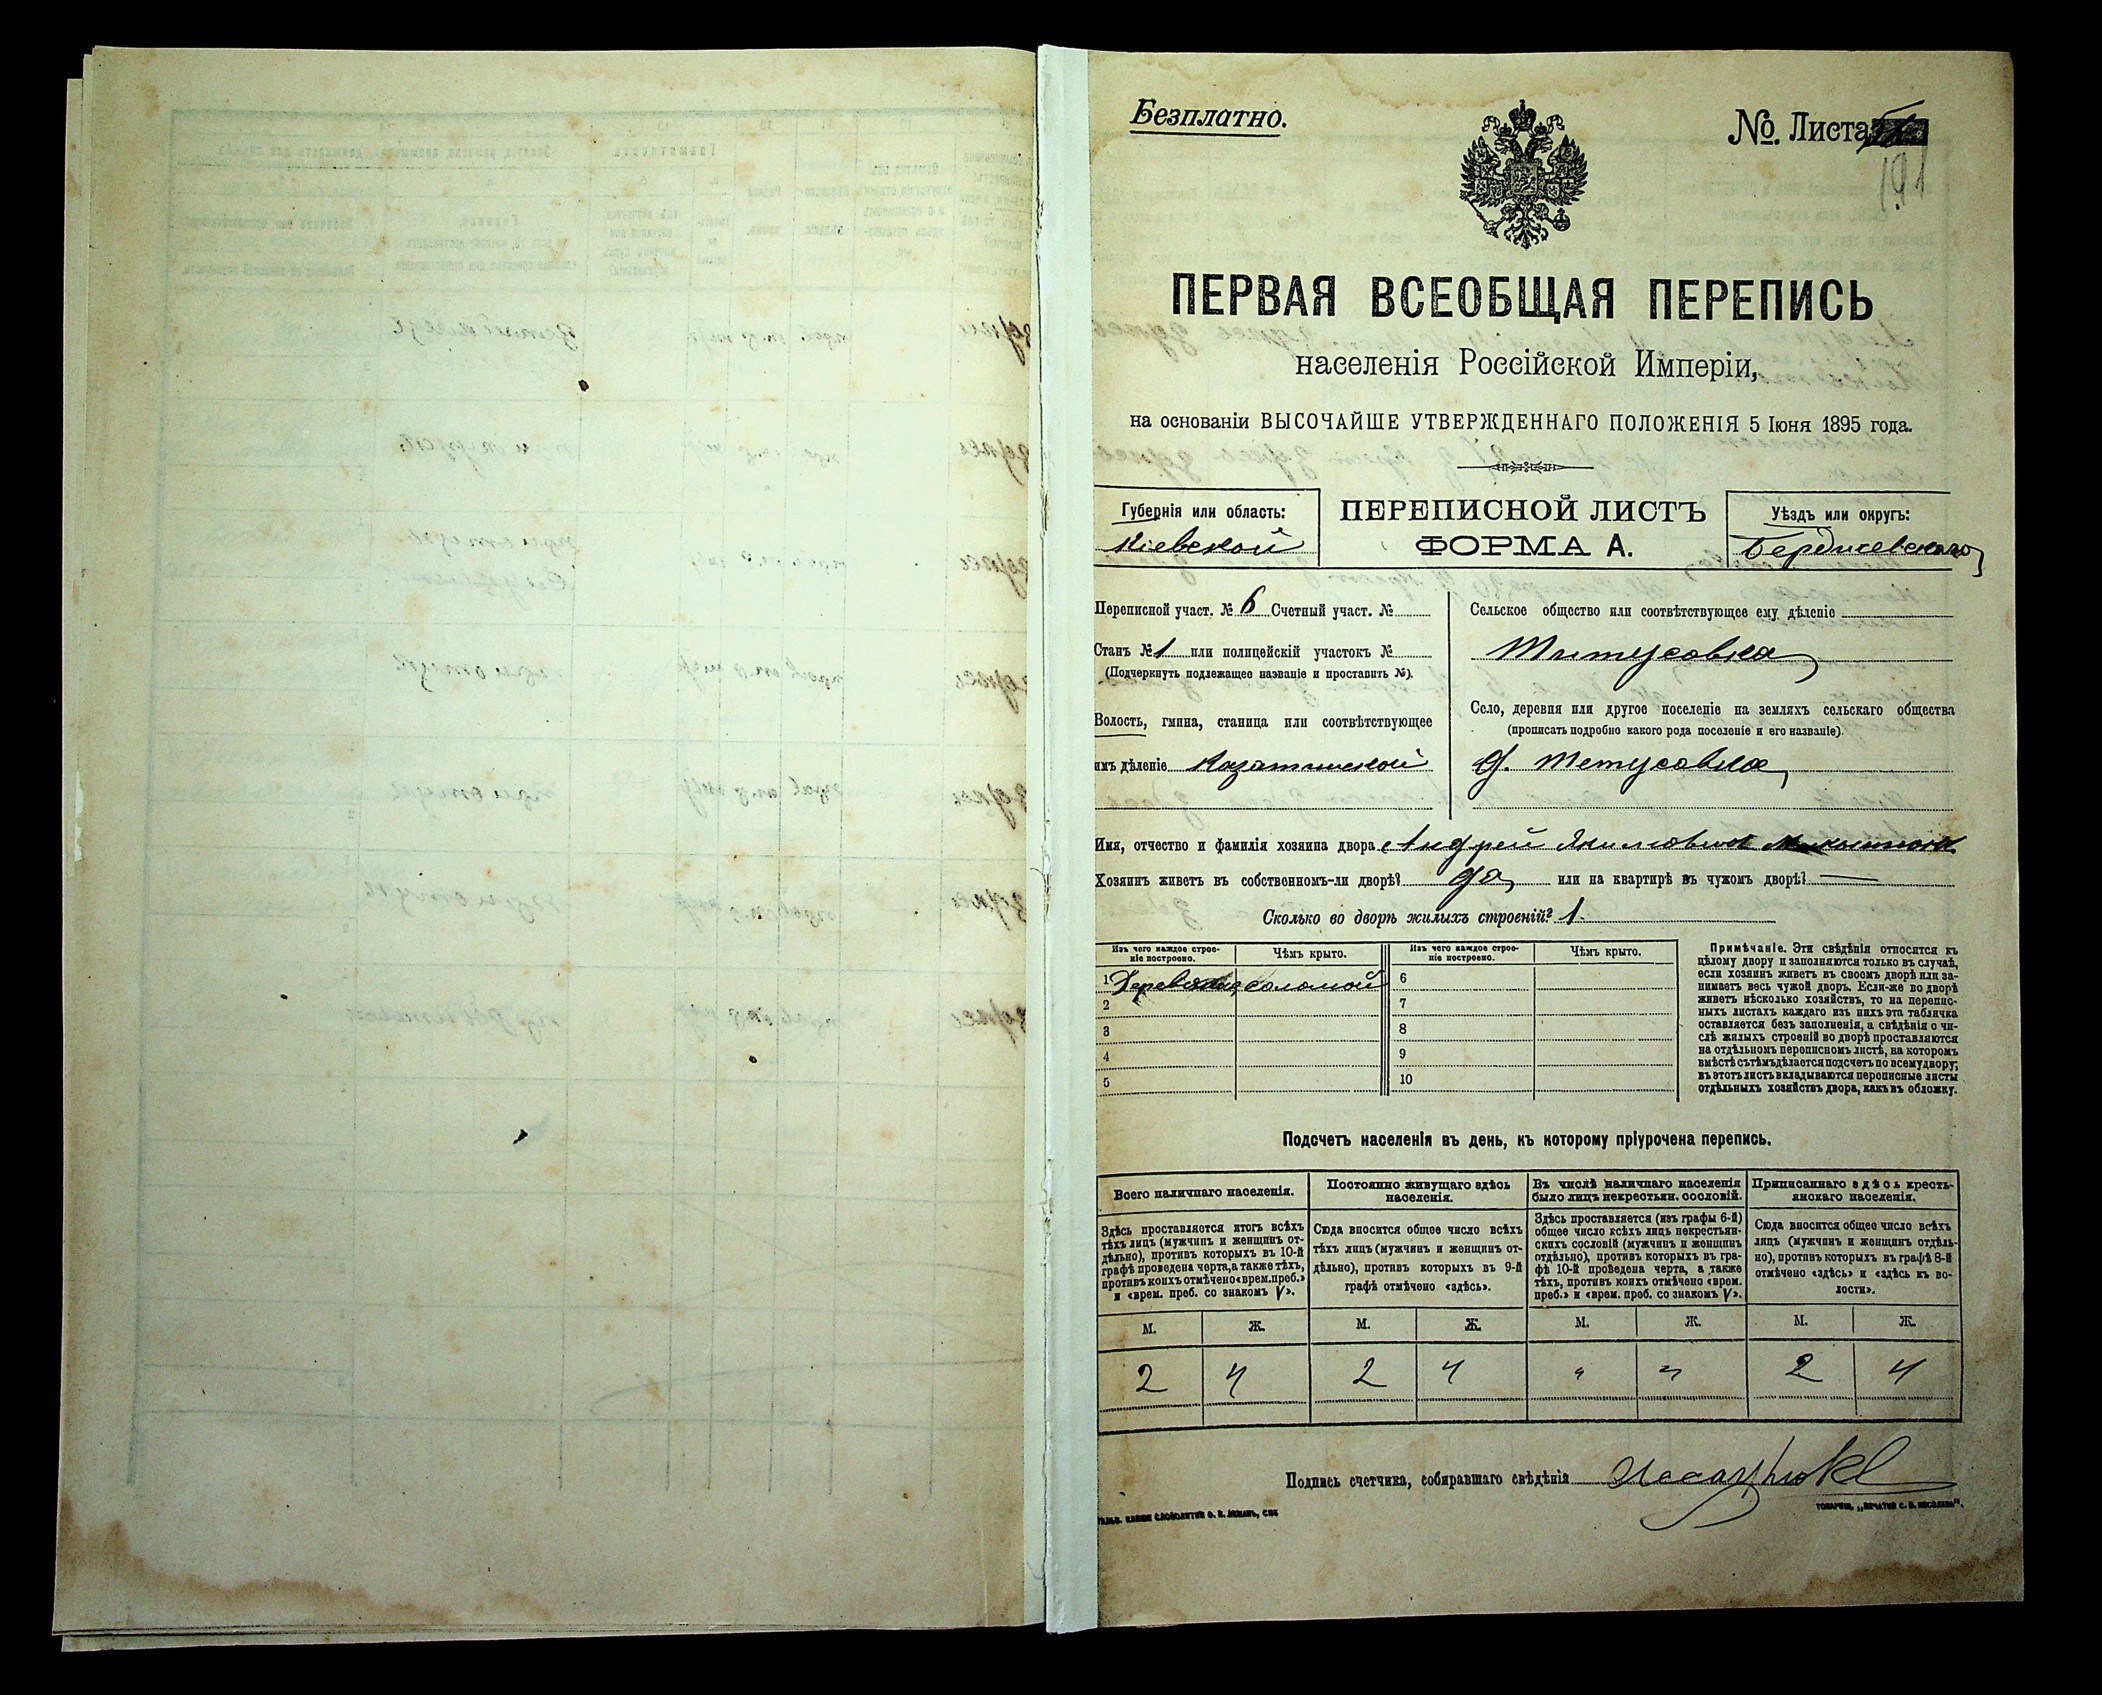 Безплатно.
№. Листа
191
ПЕРВАЯ ВСЕОБЩАЯ ПЕРЕПИСЬ
населенія Россійской Имперіи,
на основаніи ВЫСОЧАЙШЕ УТВЕРЖДЕННАГО ПОЛОЖЕНІЯ 5 Іюня 1895 года.
Губернія или область:
Кіевской
ПЕРЕПИСНОЙ ЛИСТЪ
ФОРМА А.
Уѣздъ или округъ:
Бердичевскаго
Переписной участ. № 6 Счетный участ. №
Станъ № 1 или полицейскій участокъ №
(Подчеркнуть подлежащее названіе и проставить №).
Волость, гмина, станица или соотвѣтствующее
имъ дѣленіе Казатинской
Сельское общество или соотвѣтствующее ему дѣленіе
Титусовка
Село, деревня или другое поселеніе на земляхъ сельскаго общества
(прописать подробно какого рода поселеніе и его названіе).
д. Титусовка
Имя, отчество и фамилія хозяина двора Андрей
Хозяинъ живетъ въ собственномъ-ли дворѣ? да или на квартирѣ въ чужомъ дворѣ? —
Сколько во дворѣ жилыхъ строеній? 1.
Изъ чего каждое строеніе построено.
Чѣмъ крыто.
Изъ чего каждое строеніе построено.
Чѣмъ крыто.
1 соломой
2
3
4
5
6
7
8
9
10
Примѣчаніе. Эти свѣдѣнія относятся къ
цѣлому двору и заполняются только въ случаѣ,
если хозяинъ живетъ въ своемъ дворѣ или за-
нимаетъ весь чужой дворъ. Если-же во дворѣ
живетъ нѣсколько хозяйствъ, то на перепис-
ныхъ листахъ каждаго изъ нихъ эта табличка
оставляется безъ заполненія, а свѣдѣнія о чи-
слѣ жилыхъ строеній во дворѣ проставляются
на отдѣльномъ переписномъ листѣ, на которомъ
вмѣстѣ съ тѣмъ дѣлается подсчетъ по всему двору;
въ этотъ листъ вкладываются переписные листы
отдѣльныхъ хозяйствъ двора, какъ въ обложку.
Подсчетъ населенія въ день, къ которому пріурочена перепись.
Всего наличнаго населенія.
Постоянно живущаго здѣсь
населенія.
Въ числѣ наличнаго населенія
было лицъ некрестьян. сословій.
Приписаннаго здѣсь кресть-
янскаго населенія.
Здѣсь проставляется итогъ всѣхъ
тѣхъ лицъ (мужчинъ и женщинъ от-
дѣльно), противъ которыхъ въ 10-й
графѣ проведена черта, а также тѣхъ,
противъ коихъ отмѣчено «врем. преб.»
и «врем. преб. со знакомъ V».
Сюда вносится общее число всѣхъ
тѣхъ лицъ (мужчинъ и женщинъ от-
дѣльно), противъ которыхъ въ 9-й
графѣ отмѣчено «здѣсь».
Здѣсь проставляется (изъ графы 6-й)
общее число всѣхъ лицъ некрестьян-
скихъ сословій (мужчинъ и женщинъ
отдѣльно), противъ которыхъ въ гра-
фѣ 10-й проведена черта, а также
тѣхъ, противъ коихъ отмѣчено «врем.
преб.» и «врем. преб. со знакомъ V».
Сюда вносится общее число всѣхъ
лицъ (мужчинъ и женщинъ отдѣль-
но), противъ которыхъ въ графѣ 8-й
отмѣчено «здѣсь» и «здѣсь къ во-
лости».
М. Ж. М. Ж. М. Ж. М. Ж.
2 4 2 4 " " 2 4
Подпись счетчика, собиравшаго свѣдѣнія